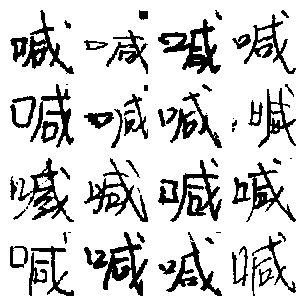 喊喊喊喊
喊喊喊喊
喊喊喊喊
喊喊喊喊